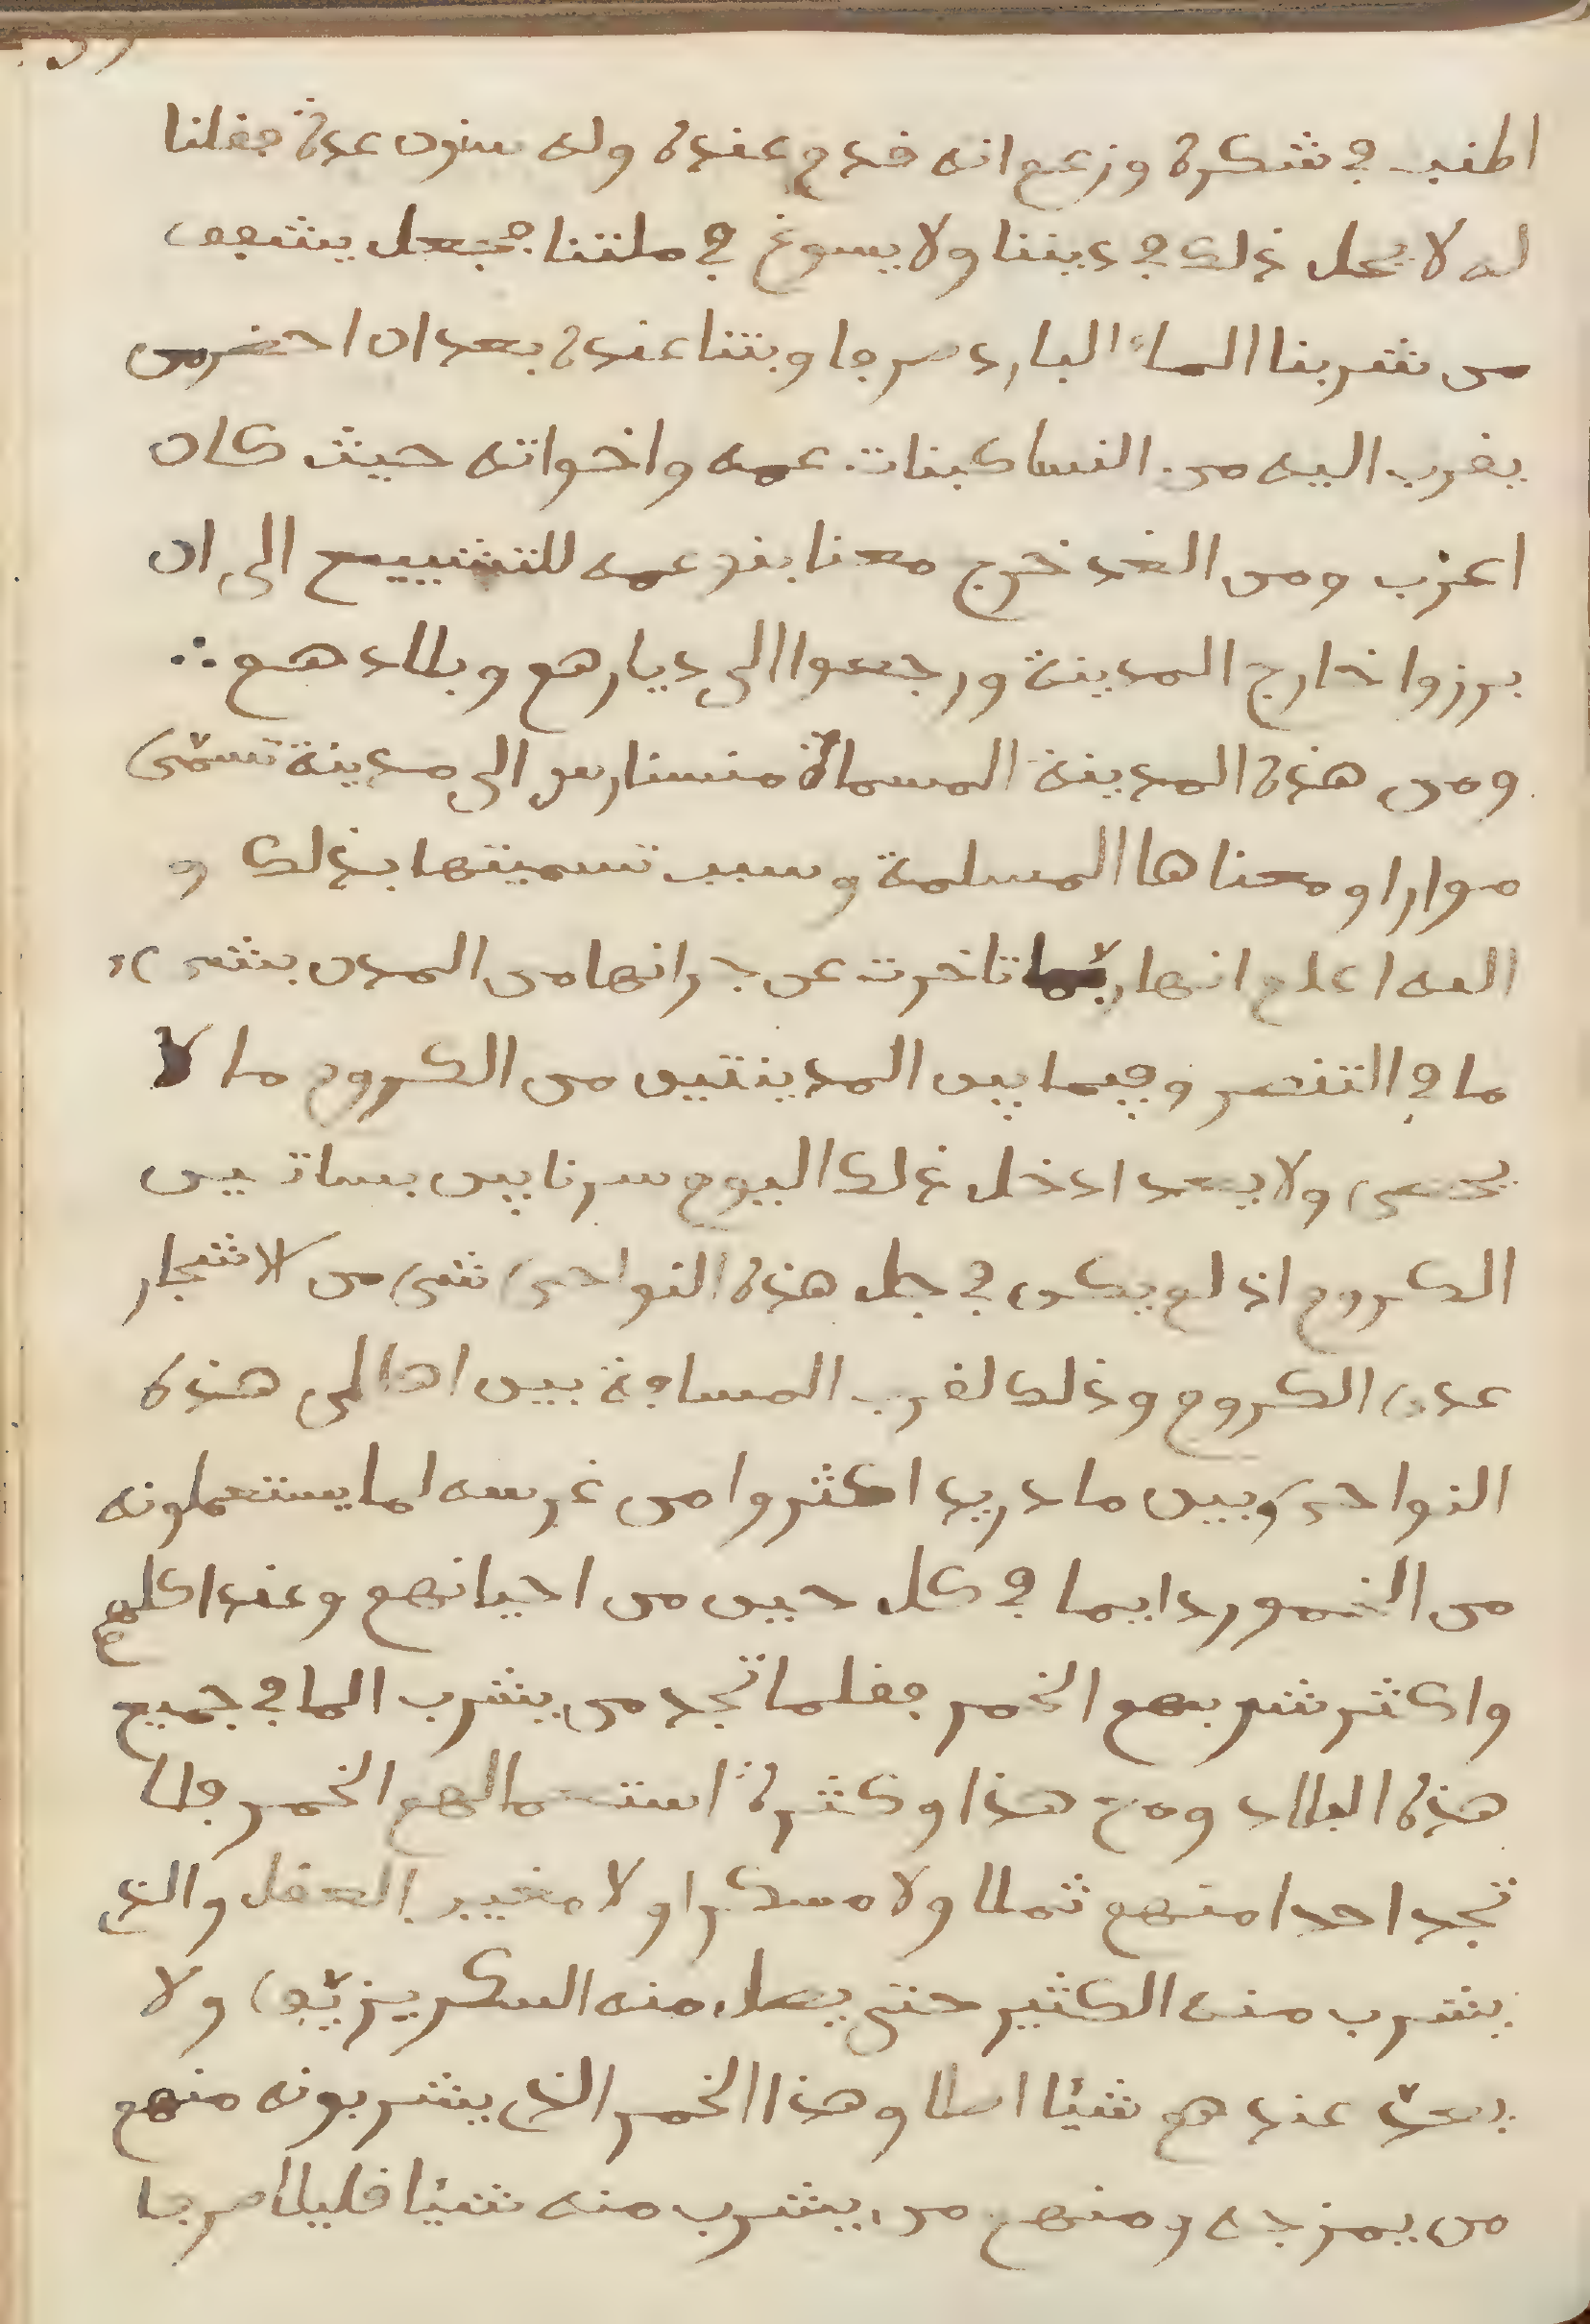 اطنب في شكره وزعم انه قدم عنده وله سنون عدة فقلنا
له لا يحل ذلك في ديننا ولا يسوغ في ملتنا فجعل يشفق
من شربنا الماء البارد صرفا وبتنا عنده بعد ان احضر من
يقرب اليه من النسا كبنات عمه واخواته حيث كان
اعزب ومن الغد خرج معنا بنو عمه للتشييع الى ان
برزوا خارج المدينة ورجعوا الى ديارهم وبلادهم ∴
ومن هذه المدينة المسماة منسنارس الى مدينة تسمى
موارا ومعناها المسلمة وسبب تسميتها بذلك و
الله اعلم انها ربما تاخرت عن جرانها من المدن بشىء
ما في التنصر وفيما بين المدينتين من الكروم ما لا
يحصى ولا يعد ادخل ذلك اليوم سرنا بين بساتين
الكروم اذ لم يكن في جل هذه النواحى شىء من الاشجار
عدى الكروم وذلك لقرب المسافة بين اهالى هذه
النواحى وبين مادريد اكثروا من غرسه لما يستعملونه
من الخمور دايما في كل حين من احيانهم وعند اكلهم
واكثر شربهم الخمر فقلما تجد من يشرب الما في جميع
هذه البلاد ومع هذا وكثرة استعمالهم الخمر فلا
تجد احدا منهم ثملا ولا مسكرا ولا مغير العقل والذى
يشرب منه الكثير حتى يصل منه السكر يزبق ولا
يعد عندهم شيئا اصلا وهذا الخمر الذى يشربونه منهم
من يمزجه ومنهم من يشرب منه شيئا قليلا صرفا